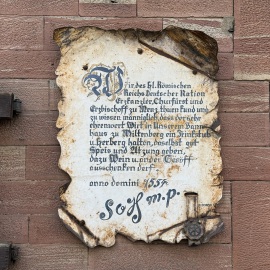 Wir des hl. Römischen
Reichs Deutscher Nation
Erzkanzler, Churfürst und
Erzbischoff zu Menz, thuen kund und
zu wissen männiglich, dass der sehr
ehrenwert Wirt in Unserem Bann-
haus zu Miltenberg ein Trinkstub
u. Herberg halten, daselbst gut
Speis und Atzung geben,
dazu Wein u. ander Gesöff
ausschenken derf.
anno domini
m.p.